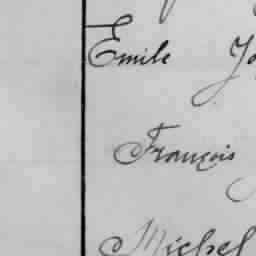 Emile
François
Michel